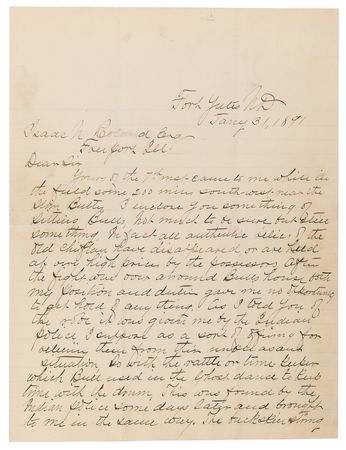 Fort Yates ND
Jany 31, 1891
Isaac N Esq
Freeport Ill
Dear Sir
Yours of the 7th inst came to me while in
the field some 200 miles south west near the
Slim Butte. I enclose you something of
Sitting Bull's, not much to be sure but still
something. In fact all authentic relics of the
old chieftain have disappeared, or are held
at very high prices by the possessors. After
the fight was over around Bull's house both
my position and duties gave me no opportunity
to get hold of any thing. As I told you of
the it was given me by the Indian
Police I suppose as a sort of offering for
relieving them from their unpleasant
situation. So with the rattle or time
which Bull used in the Ghost dance to keep
time with the drum. This was found by the
Indian Police some days later and brought
to me in the same way. The buckskin string